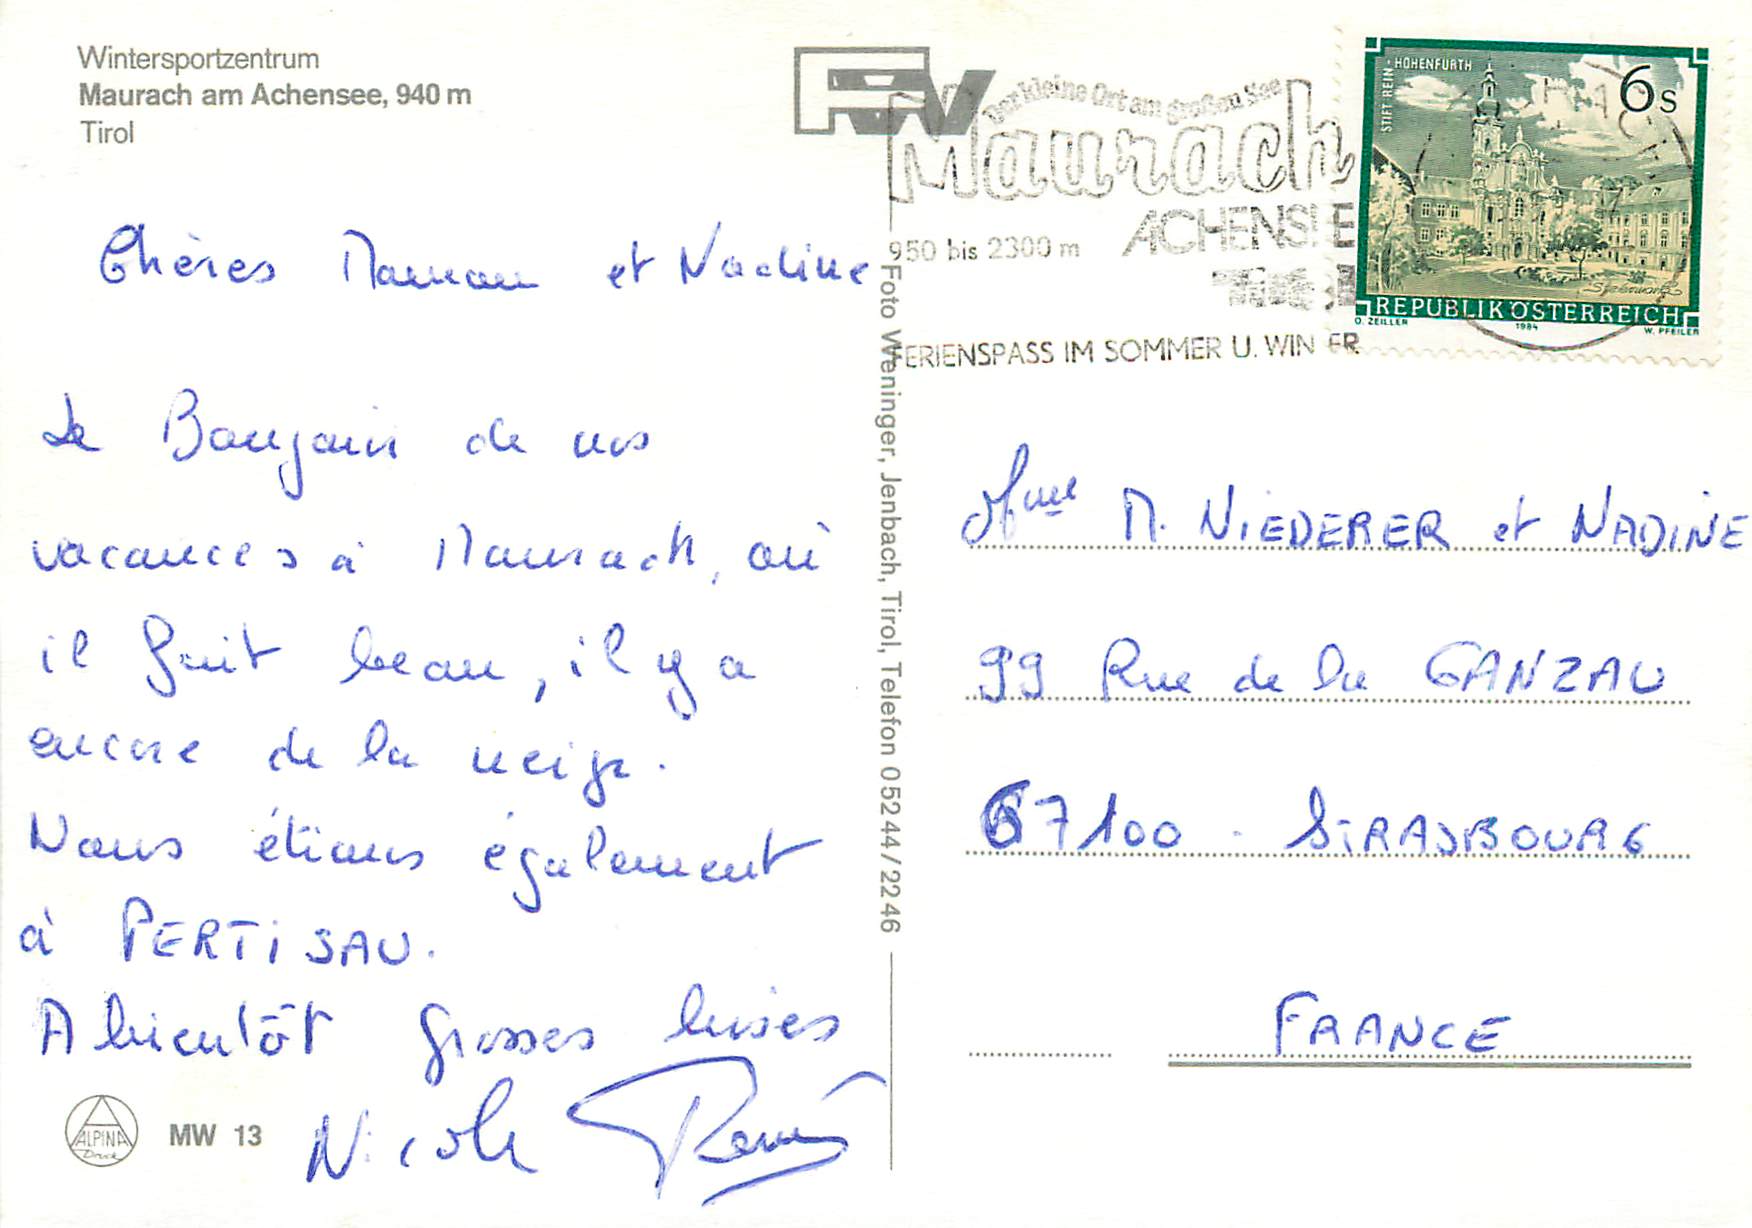 Wintersportzentrum
Maurach am Achensee, 940 m
Tirol
Chères Maman et Nadine
Le Bonjour de nos
vacances à Maurach, où
il fait beau, il y a
encore de la neige.
Nous étions également
à PERTISAU.
A bientôt grosses bises
Nicole René
ALPINA
Druck
MW 13
FW
Foto Weninger, Jenbach, Tirol, Telefon 05244/2246
Der kleine Ort am großen See
Maurach
ACHENSEE
950 bis 2300 m
Tirol
FERIENSPASS IM SOMMER U. WINTER
STIFT REIN-HOHENFURTH
6 S
REPUBLIK ÖSTERREICH
O. ZEILLER 1984 W. PFEILER
Mme M. NIEDERER et NADINE
99 Rue de la GANZAU
67100 - STRASBOURG
FRANCE